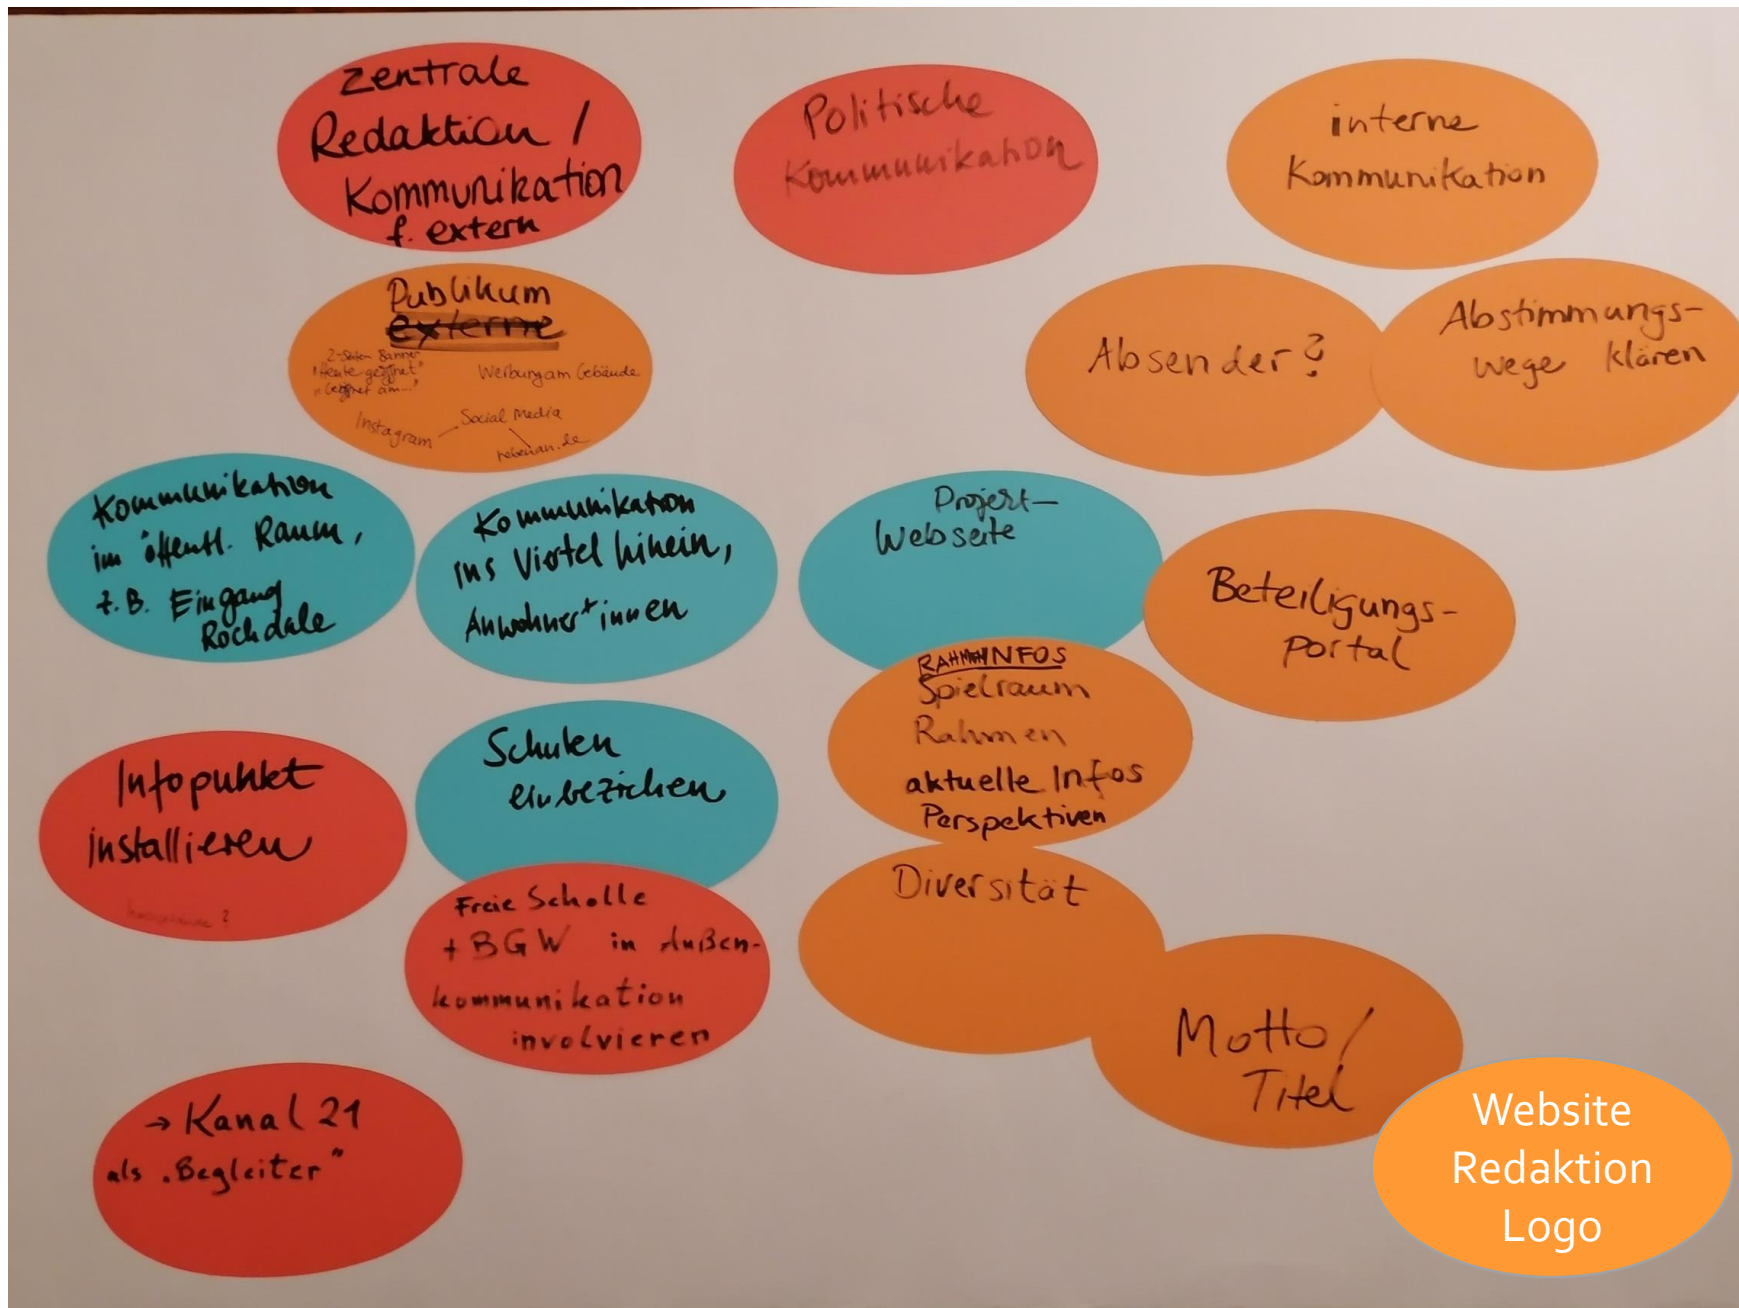 zentrale
Redaktion /
Kommunikation
f. extern
Politische
Kommunikation
interne
Kommunikation
Publikum
externe
2-Seiten Banner
"Heute geöffnet"
"Geöffnet am..."
Werbung am Gebäude
Social Media
Instagram
nebenan.de
Absender?
Abstimmungs-
wege klären
Kommunikation
im öffentl. Raum,
z.B. Eingang
Rochdale
Kommunikation
ins Viertel hinein,
Anwohner*innen
Projekt-
Webseite
Beteiligungs-
portal
RAHMENINFOS
Spielraum
Rahmen
aktuelle Infos
Perspektiven
Infopunkt
installieren
Schulen
einbeziehen
Diversität
Freie Scholle
+ BGW in Außen-
kommunikation
involvieren
Motto/
Titel
→ Kanal 21
als „Begleiter"
Website
Redaktion
Logo